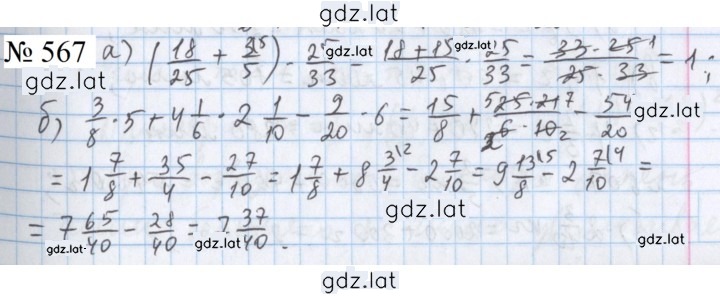 gdz.lat
№ 567 а) (18/25 + 3/5) · 25/33 = 18+15/25 · 25/33 = 33·25/25·33 = 1;
gdz.lat
gdz.lat
б) 3/8 · 5 + 4 1/6 · 2 1/10 − 9/20 · 6 = 15/8 + 25·21/6·10 − 54/20
gdz.lat
= 1 7/8 + 35/4 − 27/10 = 1 7/8 + 8 3/4 − 2 7/10 = 9 13/8 − 2 7/10 =
gdz.lat
= 7 65/40 − 28/40 = 7 37/40.
gdz.lat gdz.lat gdz.lat
gdz.lat